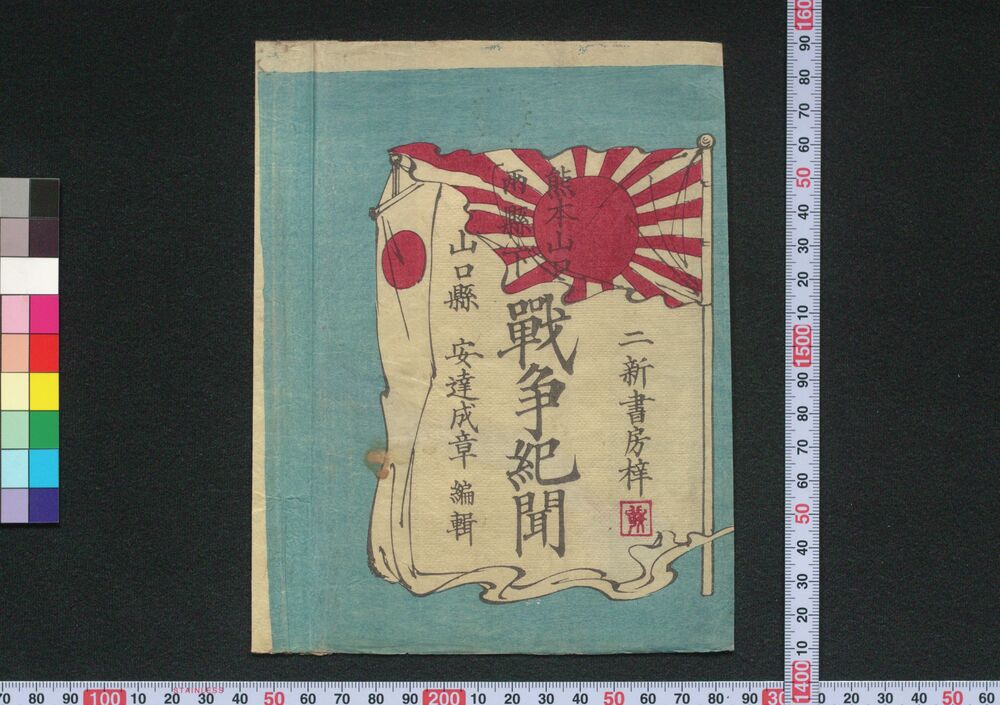 熊本山口
兩縣下
戰争紀聞
山口縣 安達成章 編輯
二新書房梓
STAINLESS
70 80 90 100 10 20 30 40 50 60 70 80 90 200 10 20 30 40 50 60 70 80 90 30 10 20 30 40 50 60
160 90 80 70 60 50 40 30 20 10 1500 90 80 70 60 50 40 30 20 10 1400